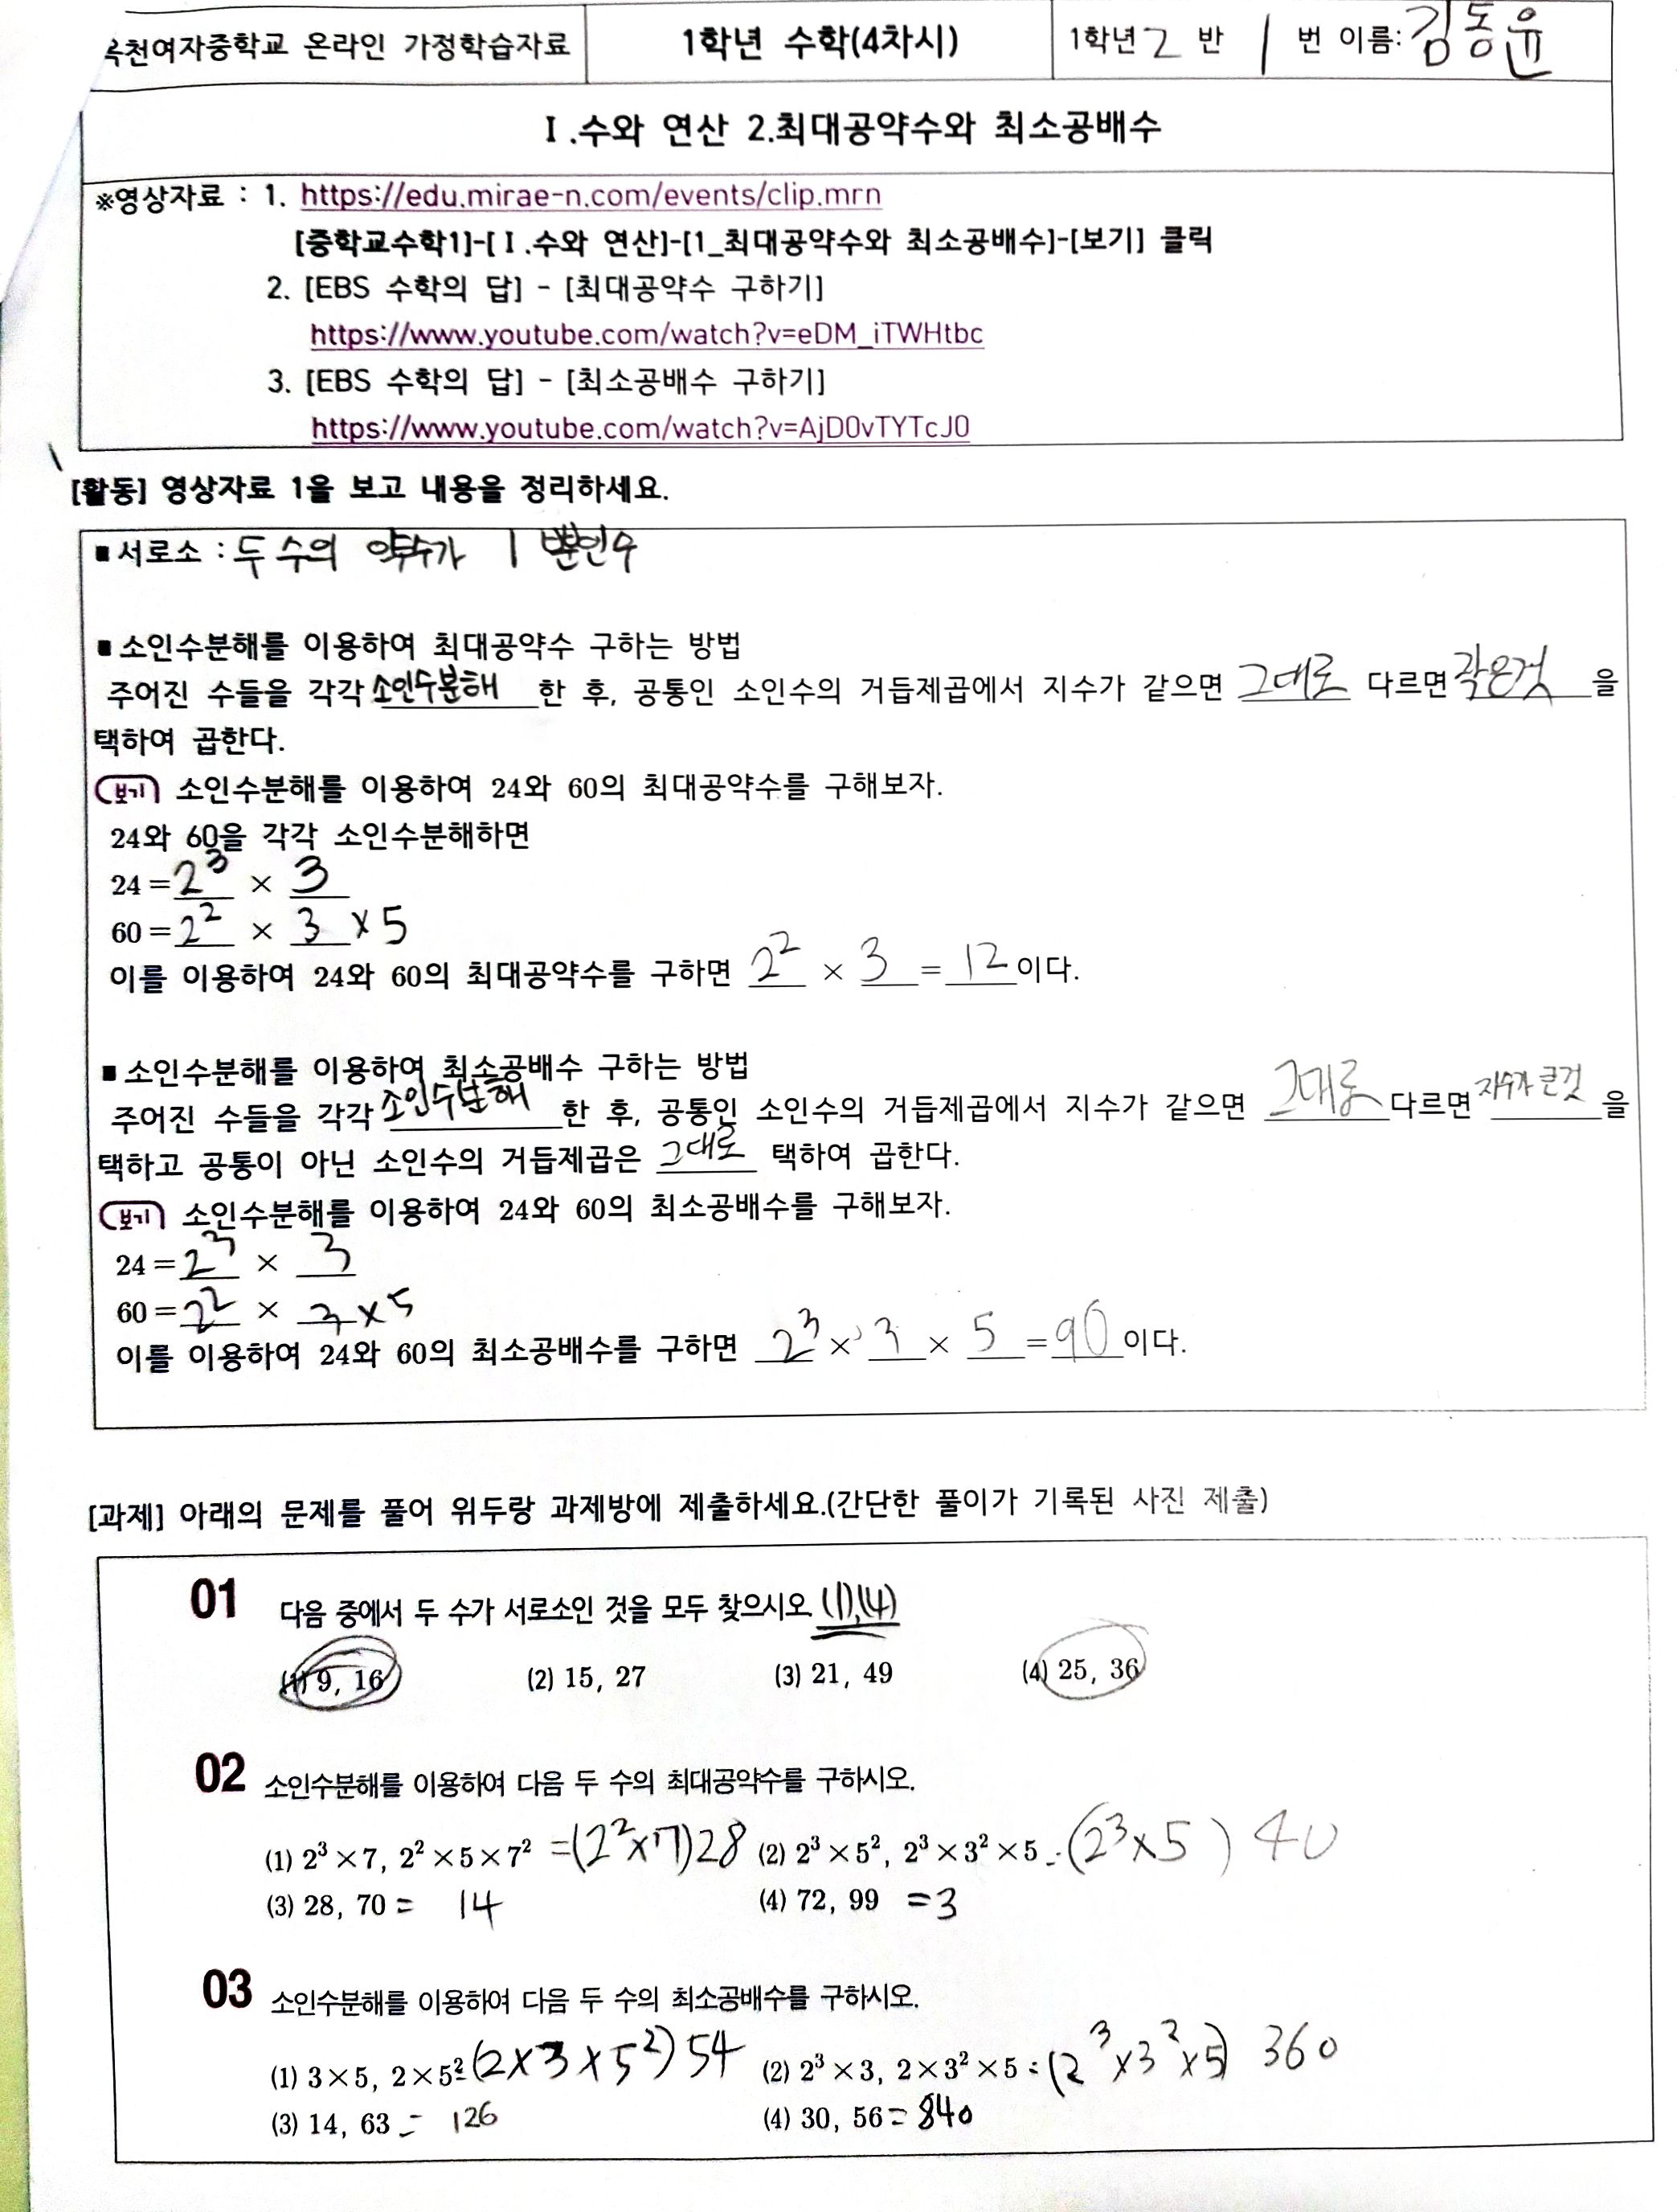 옥천여자중학교 온라인 가정학습자료 1학년 수학(4차시) 1학년 2 반 1 번 이름: 김동윤
Ⅰ.수와 연산 2.최대공약수와 최소공배수
※영상자료 : 1. https://edu.mirae-n.com/events/clip.mrn
[중학교수학1]-[Ⅰ.수와 연산]-[1_최대공약수와 최소공배수]-[보기] 클릭
2. [EBS 수학의 답] - [최대공약수 구하기]
https://www.youtube.com/watch?v=eDM_iTWHtbc
3. [EBS 수학의 답] - [최소공배수 구하기]
https://www.youtube.com/watch?v=AjD0vTYTcJ0
[활동] 영상자료 1을 보고 내용을 정리하세요.
■ 서로소 : 두 수의 약수가 1 뿐인수
■ 소인수분해를 이용하여 최대공약수 구하는 방법
주어진 수들을 각각 소인수분해 한 후, 공통인 소인수의 거듭제곱에서 지수가 같으면 그대로 다르면 작은것 을
택하여 곱한다.
보기 소인수분해를 이용하여 24와 60의 최대공약수를 구해보자.
24와 60을 각각 소인수분해하면
24 = 2³ × 3
60 = 2² × 3 × 5
이를 이용하여 24와 60의 최대공약수를 구하면 2² × 3 = 12 이다.
■ 소인수분해를 이용하여 최소공배수 구하는 방법
주어진 수들을 각각 소인수분해 한 후, 공통인 소인수의 거듭제곱에서 지수가 같으면 그대로 다르면 지수가 큰것 을
택하고 공통이 아닌 소인수의 거듭제곱은 그대로 택하여 곱한다.
보기 소인수분해를 이용하여 24와 60의 최소공배수를 구해보자.
24 = 2³ × 3
60 = 2² × 3 × 5
이를 이용하여 24와 60의 최소공배수를 구하면 2³ × 3 × 5 = 90 이다.
[과제] 아래의 문제를 풀어 위두랑 과제방에 제출하세요.(간단한 풀이가 기록된 사진 제출)
01 다음 중에서 두 수가 서로소인 것을 모두 찾으시오. (1),(4)
(1) 9, 16 (2) 15, 27 (3) 21, 49 (4) 25, 36
02 소인수분해를 이용하여 다음 두 수의 최대공약수를 구하시오.
(1) 2³ × 7, 2² × 5 × 7² = (2² × 7) 28 (2) 2³ × 5², 2³ × 3² × 5 = (2³ × 5) 40
(3) 28, 70 = 14 (4) 72, 99 = 3
03 소인수분해를 이용하여 다음 두 수의 최소공배수를 구하시오.
(1) 3 × 5, 2 × 5² = (2 × 3 × 5²) 54 (2) 2³ × 3, 2 × 3² × 5 = (2³ × 3² × 5) 360
(3) 14, 63 = 126 (4) 30, 56 = 840